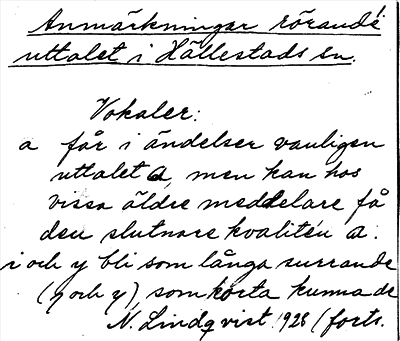 Anmärkningar rörande
uttalet i Hällestads sn.
Vokaler:
a får i ändelser vanligen
uttalet a, men kan hos
vissa äldre meddelare få
den slutnare kvalitén a.
i och y bli som långa surrande
(ɿ och y), som korta kunna de
N. Lindqvist 1928 (forts.